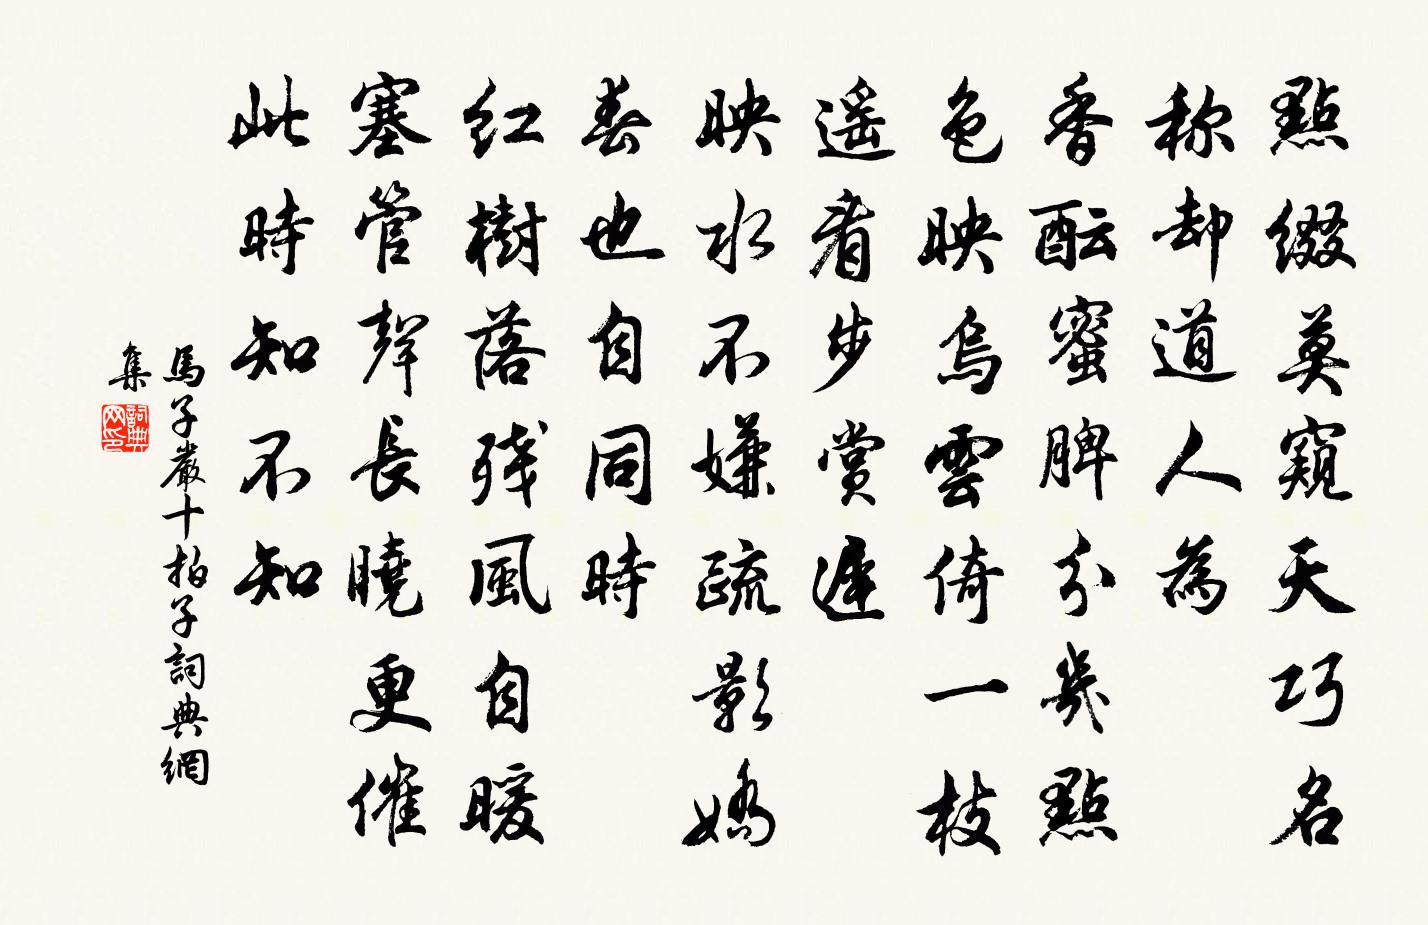 點綴莫窺天巧名
称却道人為
香酝蜜脾分幾點
色映烏雲倚一枝
遥看步賞遲
映水不嫌疏影嬌
春也自同時
红樹落残風自暖
塞管聲長曉更催
此時知不知
馬子嚴十拍子詞典網
集
詞典网印